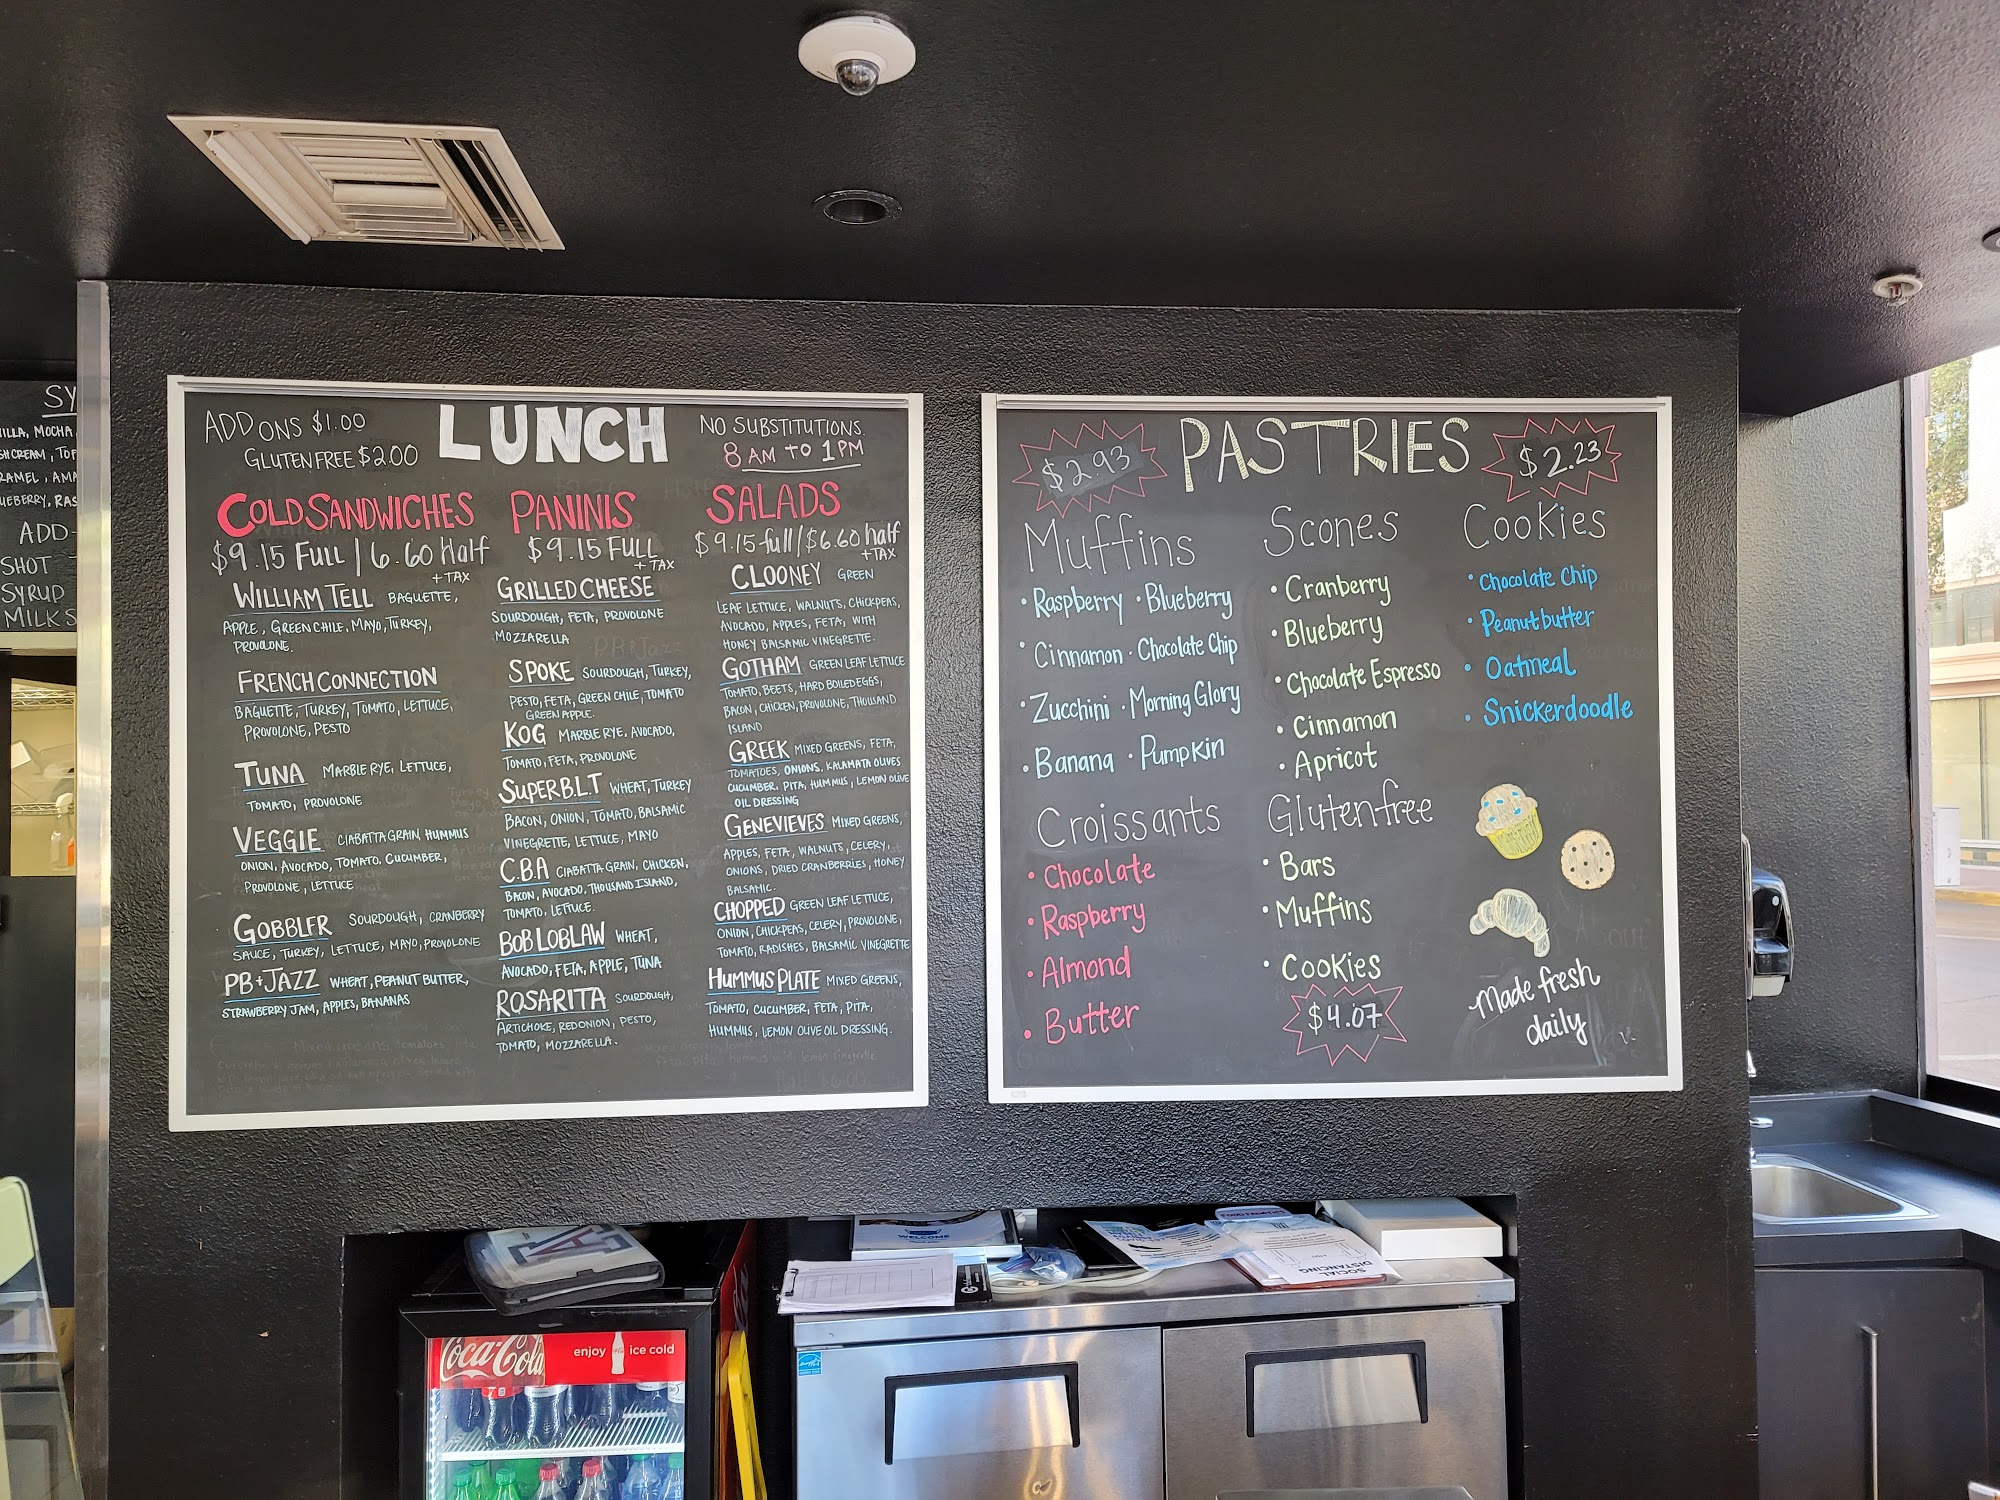 SY
ILLA, MOCHA
SHCREAM, TOF
RAMEL, AMA
UEBERRY, RAS
ADD-
SHOT
SYRUP
MILK S
ADD ONS $1.00
GLUTEN FREE $2.00
LUNCH
NO SUBSTITUTIONS.
8 AM TO 1 PM
COLD SANDWICHES
$9.15 FULL | 6.60 Half
+ TAX
WILLIAM TELL BAGUETTE,
APPLE, GREEN CHILE, MAYO, TURKEY,
PROVOLONE.
FRENCH CONNECTION
BAGUETTE, TURKEY, TOMATO, LETTUCE,
PROVOLONE, PESTO
TUNA MARBLE RYE, LETTUCE,
TOMATO, PROVOLONE
VEGGIE CIABATTA GRAIN, HUMMUS
ONION, AVOCADO, TOMATO, CUCUMBER,
PROVOLONE, LETTUCE
GOBBLER SOURDOUGH, CRANBERRY
SAUCE, TURKEY, LETTUCE, MAYO, PROVOLONE
PB+JAZZ WHEAT, PEANUT BUTTER,
STRAWBERRY JAM, APPLES, BANANAS
PANINIS
$9.15 FULL
+ TAX
GRILLED CHEESE
SOURDOUGH, FETA, PROVOLONE
MOZZARELLA
SPOKE SOURDOUGH, TURKEY,
PESTO, FETA, GREEN CHILE, TOMATO
GREEN APPLE.
KOG MARBLE RYE, AVOCADO,
TOMATO, FETA, PROVOLONE
SUPER B.L.T WHEAT, TURKEY
BACON, ONION, TOMATO, BALSAMIC
VINEGRETTE, LETTUCE, MAYO
C.B.A CIABATTA GRAIN, CHICKEN,
BACON, AVOCADO, THOUSAND ISLAND,
TOMATO, LETTUCE.
BOB LOBLAW WHEAT,
AVOCADO, FETA, APPLE, TUNA
ROSARITA SOURDOUGH,
ARTICHOKE, RED ONION, PESTO,
TOMATO, MOZZARELLA.
SALADS
$9.15 full/$6.60 half
+TAX
CLOONEY GREEN
LEAF LETTUCE, WALNUTS, CHICKPEAS,
AVOCADO, APPLES, FETA, WITH
HONEY BALSAMIC VINEGRETTE.
GOTHAM GREEN LEAF LETTUCE
TOMATO, BEETS, HARD BOILED EGGS,
BACON, CHICKEN, PROVOLONE, THOUSAND
ISLAND
GREEK MIXED GREENS, FETA,
TOMATOES, ONIONS, KALAMATA OLIVES
CUCUMBER, PITA, HUMMUS, LEMON OLIVE
OIL DRESSING
GENEVIEVES MIXED GREENS,
APPLES, FETA, WALNUTS, CELERY,
ONIONS, DRIED CRANBERRIES, HONEY
BALSAMIC.
CHOPPED GREEN LEAF LETTUCE,
ONION, CHICKPEAS, CELERY, PROVOLONE,
TOMATO, RADISHES, BALSAMIC VINEGRETTE
HUMMUS PLATE MIXED GREENS,
TOMATO, CUCUMBER, FETA, PITA,
HUMMUS, LEMON OLIVE OIL DRESSING.
$2.93
PASTRIES
$2.23
Muffins
• Raspberry • Blueberry
• Cinnamon • Chocolate Chip
• Zucchini • Morning Glory
• Banana • Pumpkin
Croissants
• Chocolate
• Raspberry
• Almond
• Butter
Scones
• Cranberry
• Blueberry
• Chocolate Espresso
• Cinnamon
• Apricot
Gluten free
• Bars
• Muffins
• Cookies
$4.07
Cookies
• Chocolate Chip
• Peanut butter
• Oatmeal
• Snickerdoodle
Made fresh
daily
WELCOME
SOCIAL
DISTANCING
Coca-Cola
enjoy ice cold